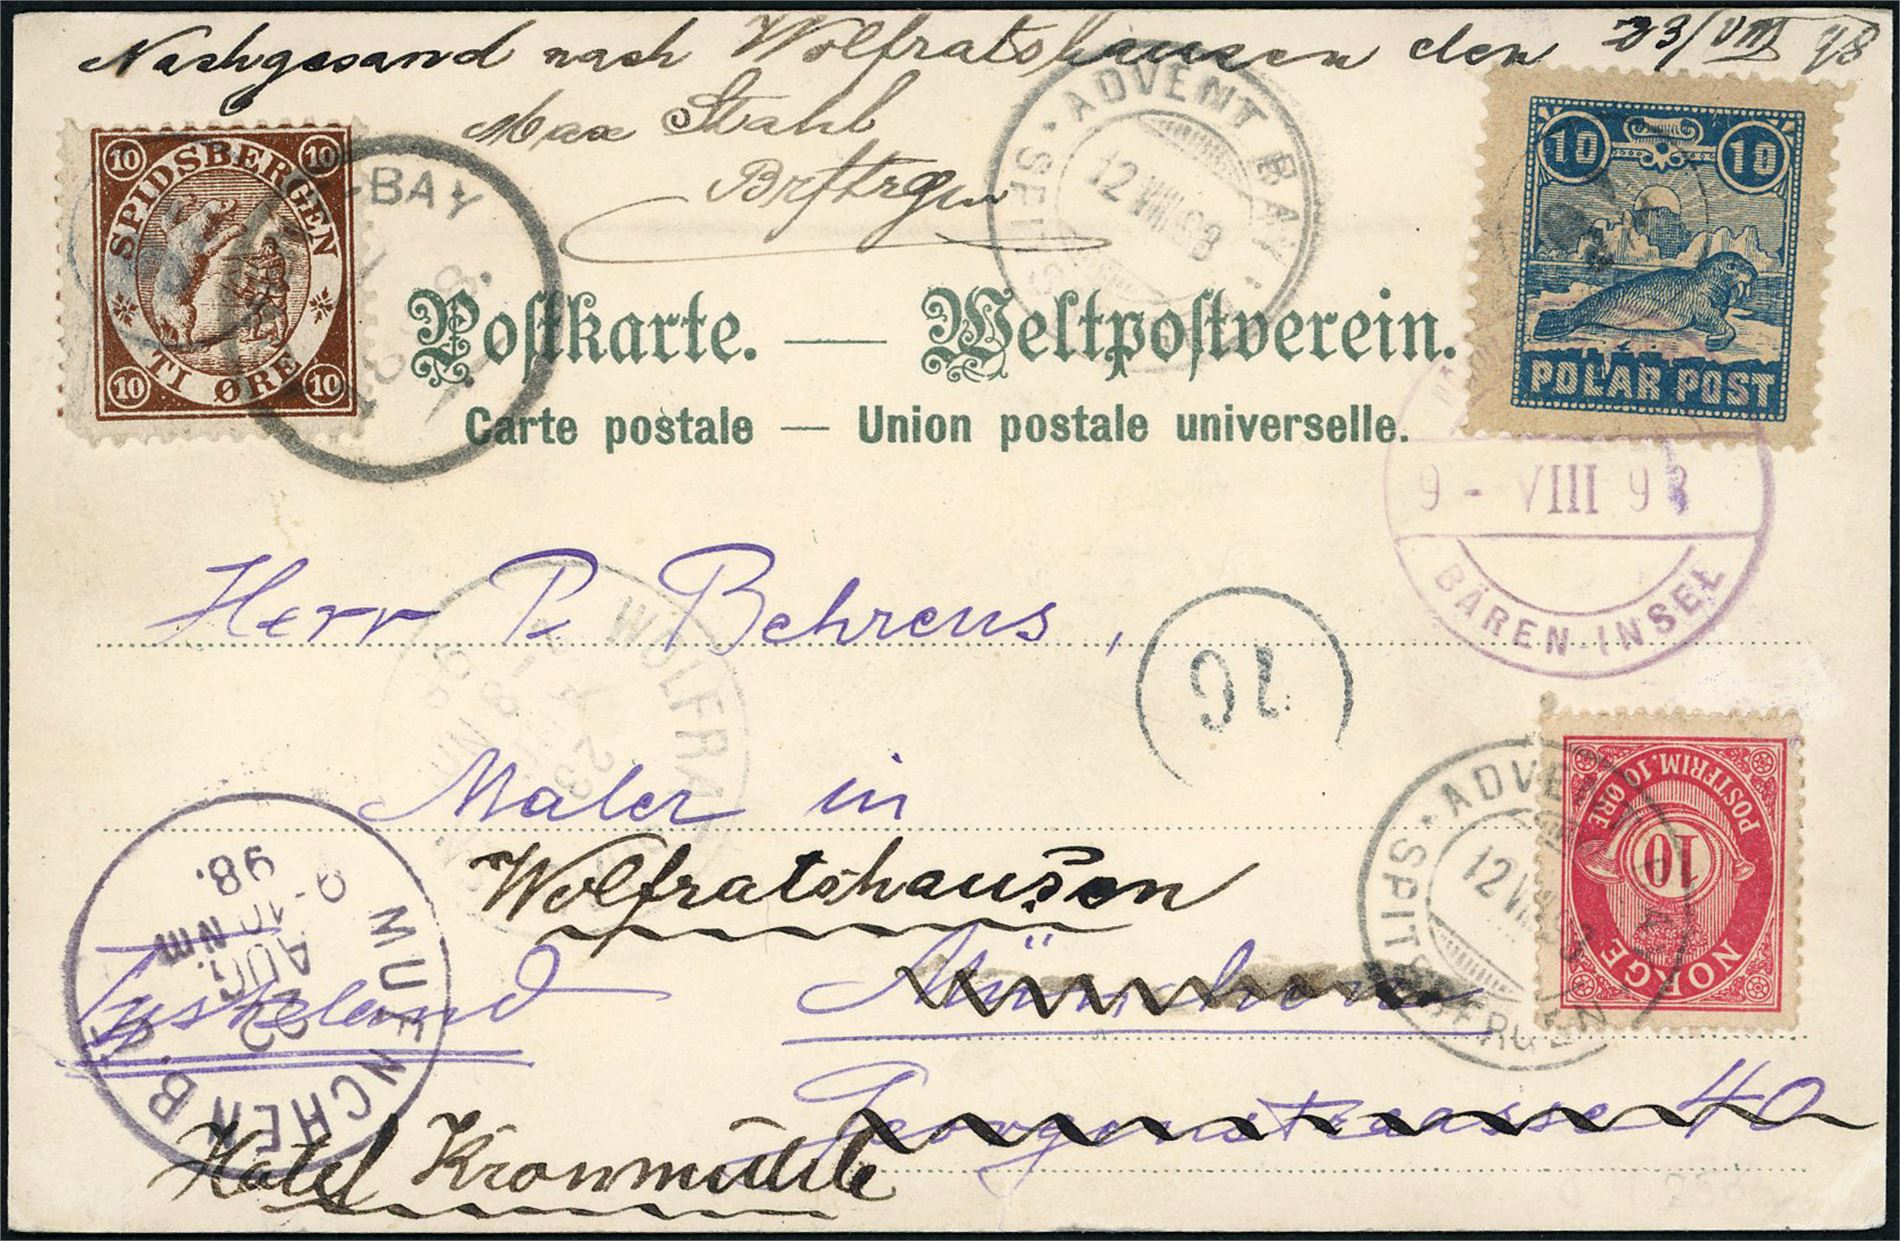 Nachgesand nach Wolfratshausen den 23/VIII 98
Max Stahl
10 10
SPIDSBERGEN
TI ØRE
10 10
-BAY
ADVENT BAY
12 VIII 98
10 10
POLAR POST
Postkarte. — Weltpostverein.
Carte postale — Union postale universelle.
9 - VIII 98
BÄREN-INSEL
Herr P. Behrens,
WOLFRA
23
Maler in
Wolfratshausen
POSTFRIM. 10 ØRE
10
NORGE
ADVENT
12 VIII 98
SPITSBERGEN
Tyskeland München
MUENCHEN B.
22 AUG.
9-10 Nm
98.
Georgenstrasse 40
Hotel Kronmühle